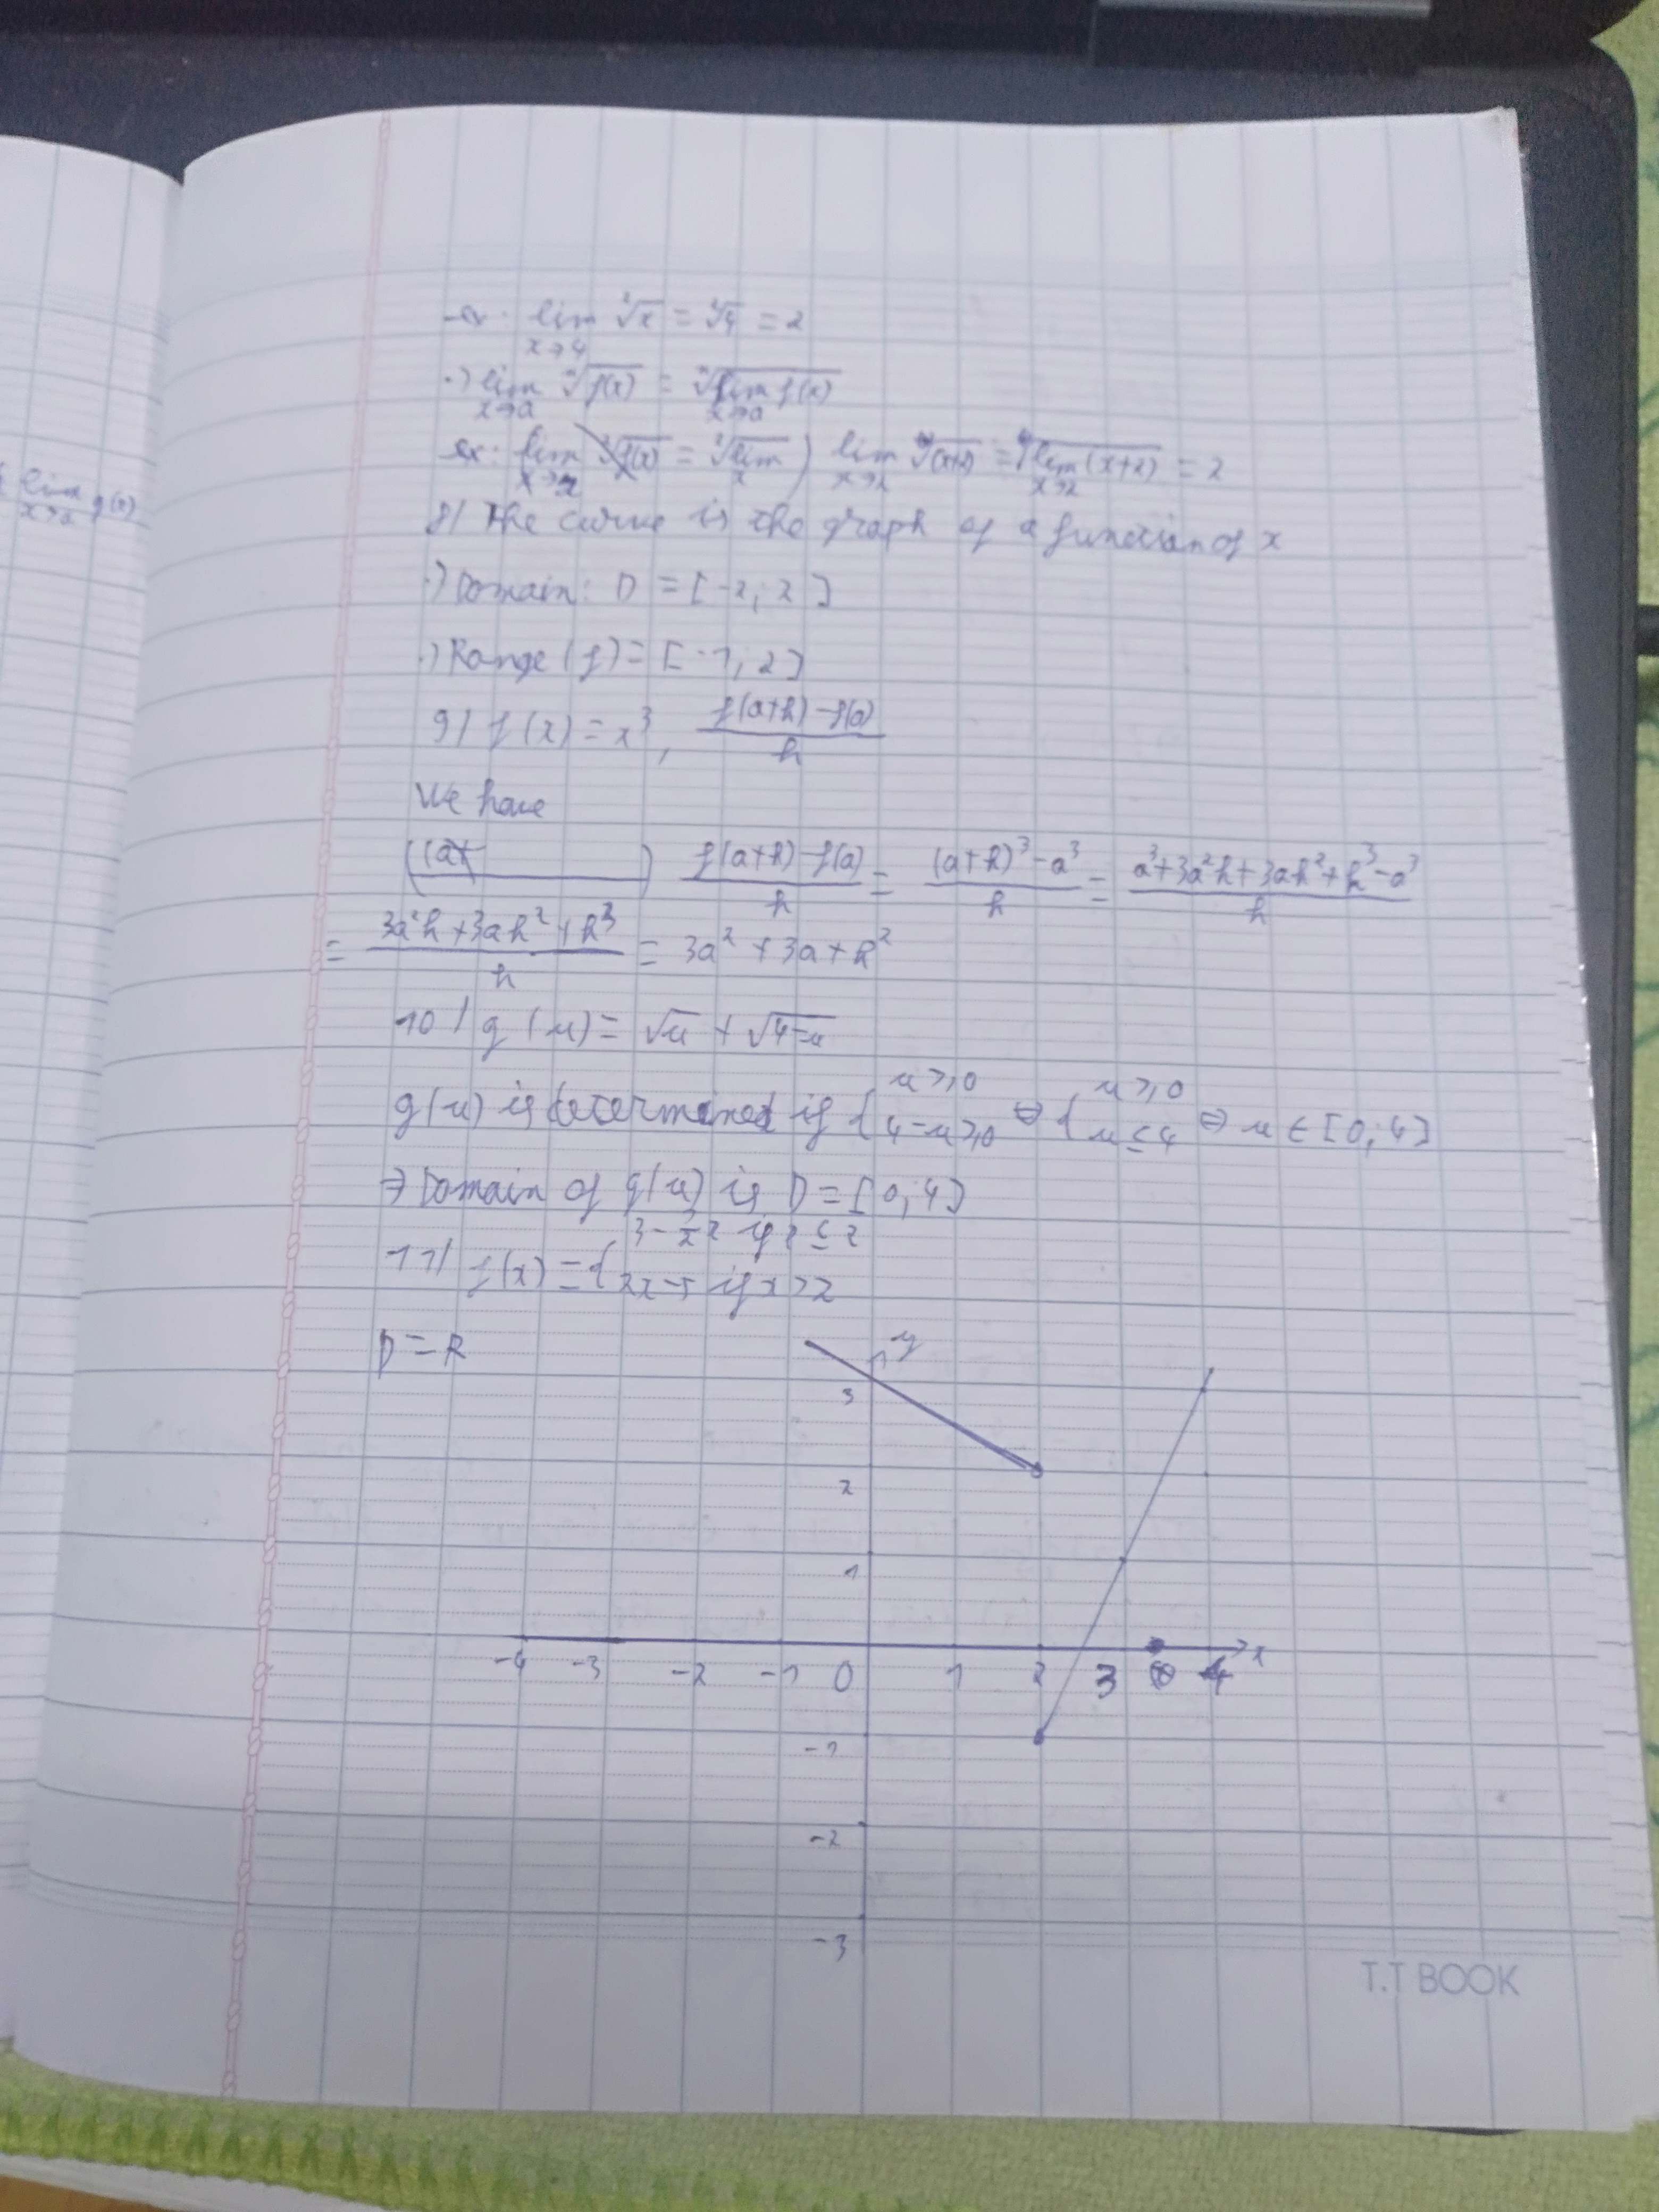 lim g(x)
x→a
-ex: lim ²√x = ²√4 = 2
x→4
·) lim ⁿ√f(x) = ⁿ√lim f(x)
x→a x→a
ex: lim = ) lim √(x+2) = √lim (x+2) = 2
x→2 x→2
8/ The curve is the graph of a function of x
·) Domain: D = [-2; 2]
·) Range (f) = [-1; 2]
9/ f(x) = x³, f(a+h) - f(a) / h
We have
f(a+h) - f(a) / h = (a+h)³ - a³ / h = a³+3a²h+3ah²+h³-a³ / h
= 3a²h+3ah²+h³ / h = 3a² + 3a + h²
10/ g(u) = √u + √4-u
g(u) is determined if { u ≥ 0 4-u ≥ 0 ⇔ { u ≥ 0 u ≤ 4 ⇔ u ∈ [0; 4]
⇒ Domain of g(u) is D = [0; 4]
11/ f(x) = { 3 - if ≤ 2
2x-5 if x > 2
D = R
y
3
2
1
-4 -3 -2 -1 0 1 2 3 4 x
-1
-2
-3
T.T BOOK